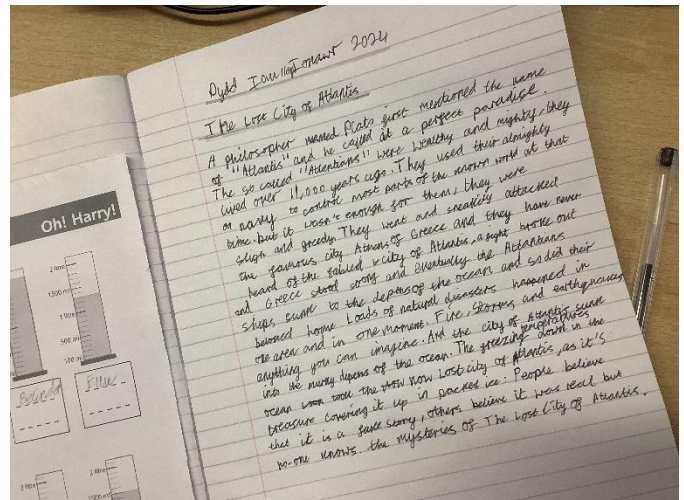 Dydd Iau 11eg Ionawr 2024
The Lost City of Atlantis
A philosopher named Plato first mentioned the name
of "Atlantis" and he called it a perfect paradise.
The so called "Atlantians" were wealthy and mighty, they
lived over 11,000 years ago. They used their almighty
navy to control most parts of the known world at that
time. but it wasn't enough for them, they were
and greedy. They went and sneakily attacked
the famous city Athens of Greece and they have never
heard of the fabled city of Atlantis, a fight broke out
and Greece stood strong and eventually the Atlantians
ships sunk to the depths of the ocean and so did their
beloved home. Loads of natural disasters happened in
one area and in one moment. Fire, Storms, and earthquakes
anything you can imagine. And the city of Atlantis sunk
into the murky depths of the ocean. The freezing temperatures
ocean took the now Lost city of Atlantis, down in the
treasure covering it up in packed ice. People believe as it's
that it is a fake story, others believe it was real but
no-one knows the mysteries of The Lost City of Atlantis.
Oh! Harry!
2 litre
1500 ml
1 litre
500 ml
100 ml
2 litre
2 litre
1500 ml